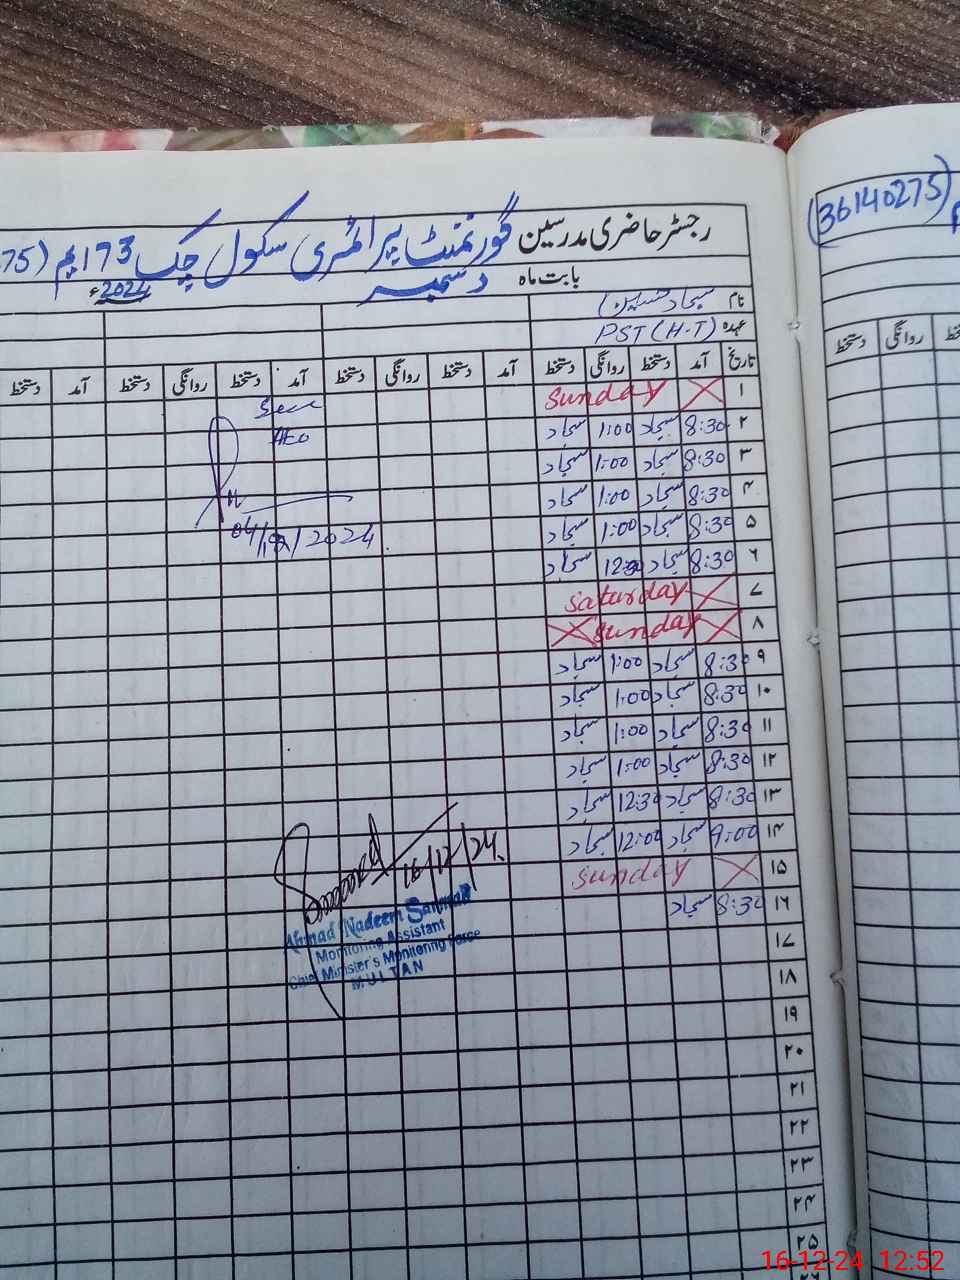 (36140275)
رجسٹر حاضری مدرسین گورنمنٹ پرائمری سکول چک 173 ایم (75
بابت ماہ دسمبر 2024ء
نام سجاد حسین
عہدہ PST (H.T)
تاریخ آمد دستخط روانگی دستخط آمد دستخط روانگی دستخط آمد دستخط روانگی دستخط آمد دستخط
دستخط روانگی
۱ Sunday
Seen
۲ 8:30 سجاد 1:00 سجاد
AEO
۳ 8:30 سجاد 1:00 سجاد
۴ 8:30 سجاد 1:00 سجاد
۵ 8:30 سجاد 1:00 سجاد
04/12/2024
۶ 8:30 سجاد 12:30 سجاد
۷ Saturday
۸ Sunday
۹ 8:30 سجاد 1:00 سجاد
۱۰ 8:30 سجاد 1:00 سجاد
۱۱ 8:30 سجاد 1:00 سجاد
۱۲ 8:30 سجاد 1:00 سجاد
۱۳ 8:30 سجاد 12:30 سجاد
۱۴ 9:00 سجاد 12:00 سجاد
۱۵ Sunday
16/12/24
۱۶ 8:30 سجاد
Ahmad Nadeem
Monitoring Assistant
Chief Minister's Monitoring Force
MULTAN
۱۷
۱۸
۱۹
۲۰
۲۱
۲۲
۲۳
۲۴
۲۵
16-12-24 12:52